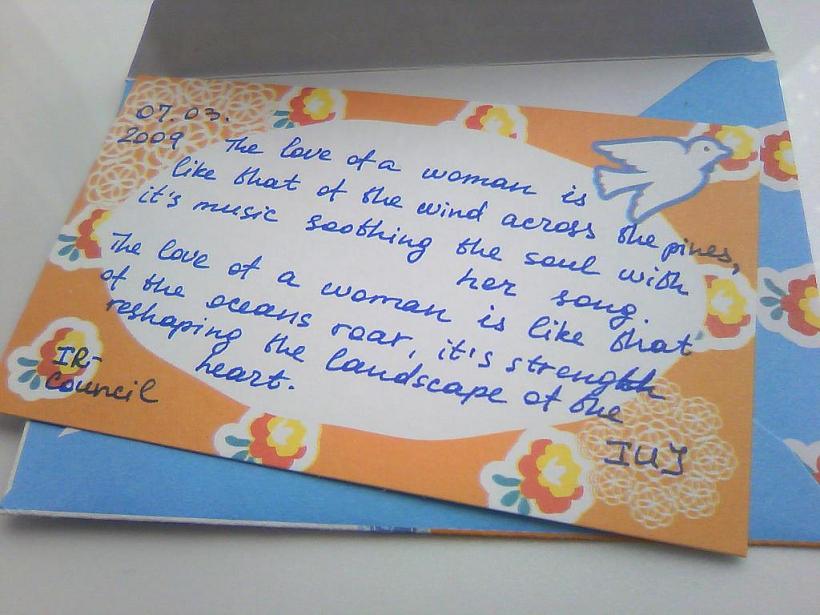 07.03.
2009
The love of a woman is
like that of the wind across the pines,
it's music soothing the soul with
her song.
The love of a woman is like that
of the oceans roar, it's strength
reshaping the landscape of the
heart.
IR-
Council
IUJ